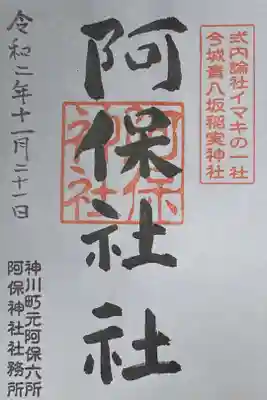 式内論社イマキの一社
今城青八坂稲実神社
阿保神社
阿保神社
令和二年十一月二十二日
神川町元阿保六所
阿保神社社務所